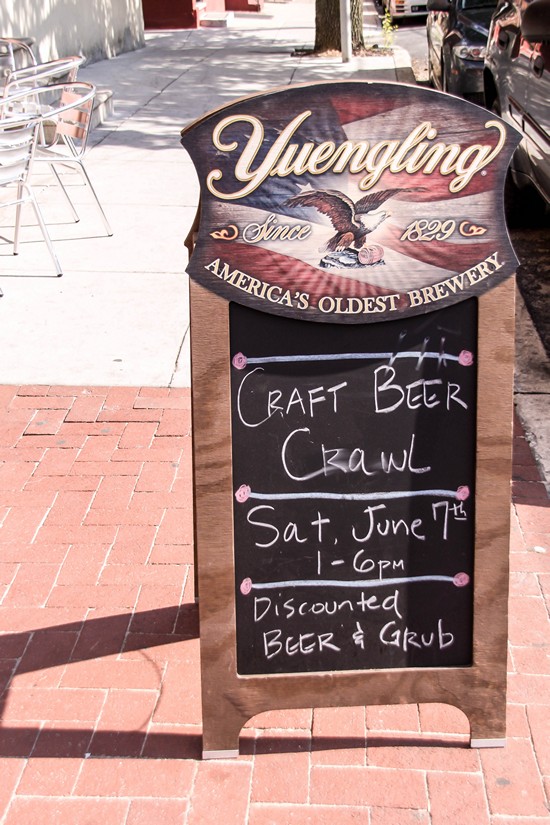 Yuengling
Since 1829
AMERICA'S OLDEST BREWERY
CRAFT BEER
CRAWL
Sat, June 7th
1-6PM
Discounted
BEER & GRUB